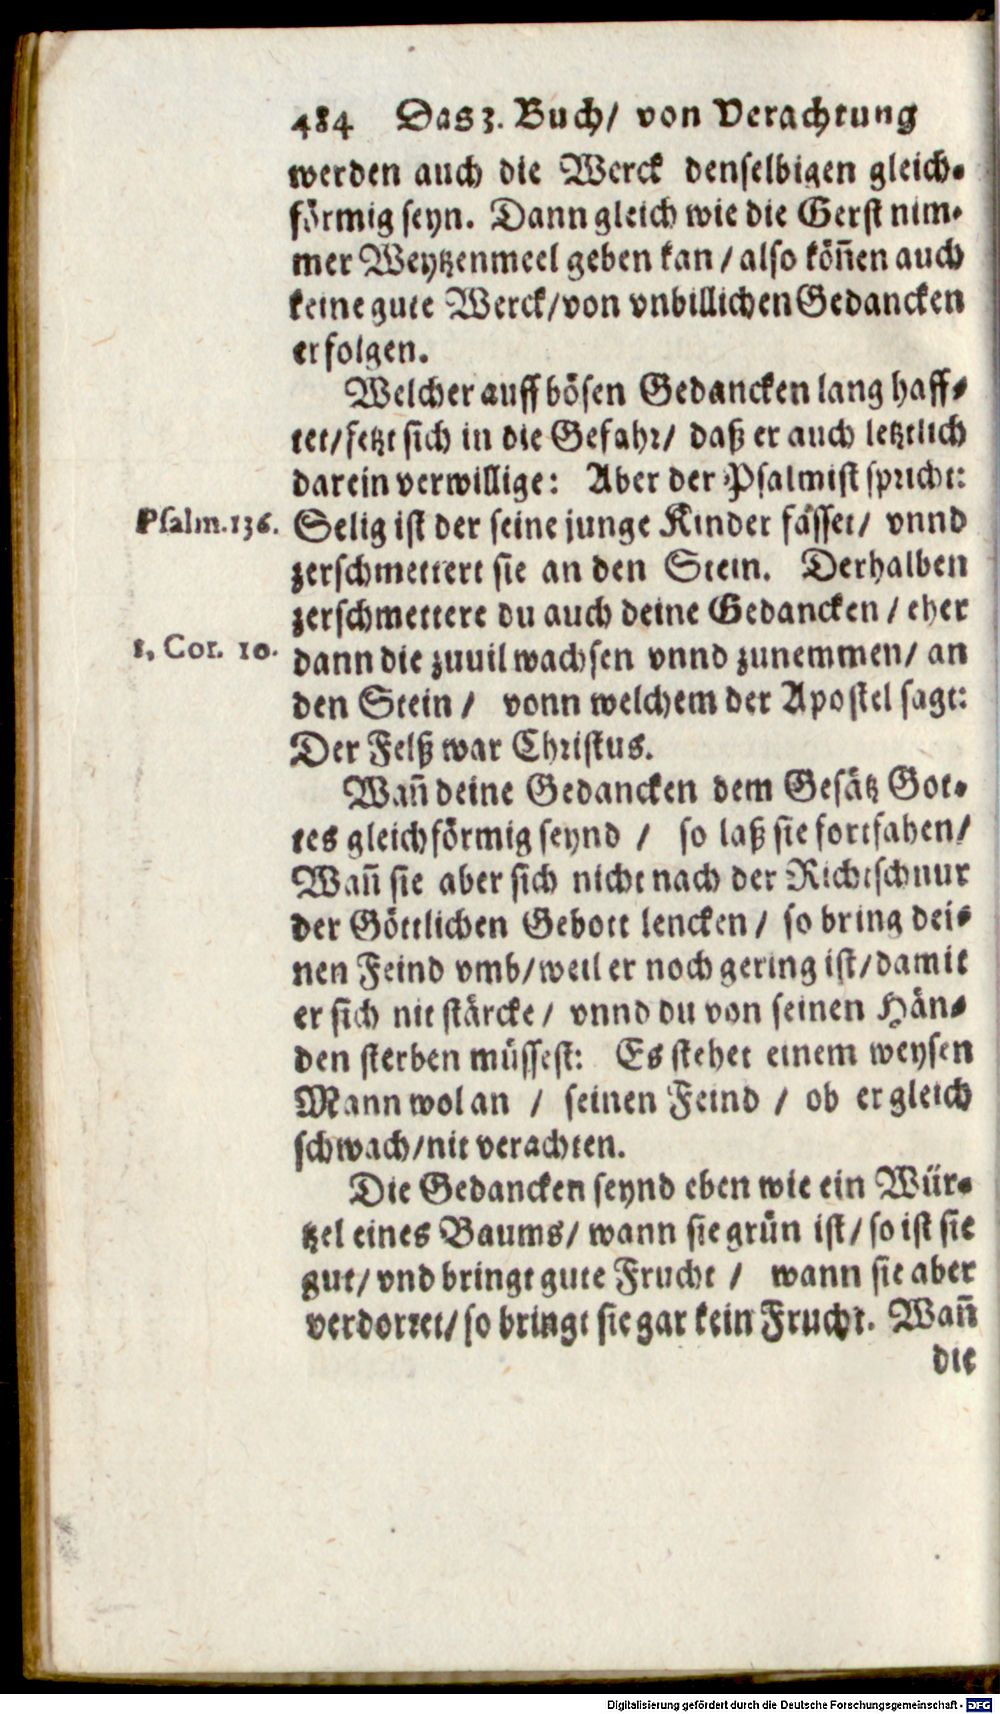 484 Das 3. Buch/ von Verachtung
werden auch die Werck denselbigen gleich-
förmig seyn. Dann gleich wie die Gerst nim-
mer Weytzenmeel geben kan / also köñen auch
keine gute Werck/von vnbillichen Gedancken
erfolgen.
Welcher auff bösen Gedancken lang haff-
tet/setzt sich in die Gefahr/ daß er auch letztlich
darein verwillige: Aber der Psalmist spricht:
Psalm.136. Selig ist der seine junge Kinder fässet/ vnnd
zerschmettert sie an den Stein. Derhalben
zerschmettere du auch deine Gedancken / eher
1. Cor. 10. dann die zuuil wachsen vnnd zunemmen/ an
den Stein / vonn welchem der Apostel sagt:
Der Felß war Christus.
Wañ deine Gedancken dem Gesätz Got-
tes gleichförmig seynd / so laß sie fortfahen/
Wañ sie aber sich nicht nach der Richtschnur
der Göttlichen Gebott lencken / so bring dei-
nen Feind vmb/weil er noch gering ist/damit
er sich nit stärcke / vnnd du von seinen Hän-
den sterben müssest: Es stehet einem weysen
Mann wol an / seinen Feind / ob er gleich
schwach/nit verachten.
Die Gedancken seynd eben wie ein Wür-
tzel eines Baums/ wann sie grün ist/ so ist sie
gut/ vnd bringt gute Frucht / wann sie aber
verdorret/ so bringt sie gar kein Frucht. Wañ
die
Digitalisierung gefördert durch die Deutsche Forschungsgemeinschaft - DFG